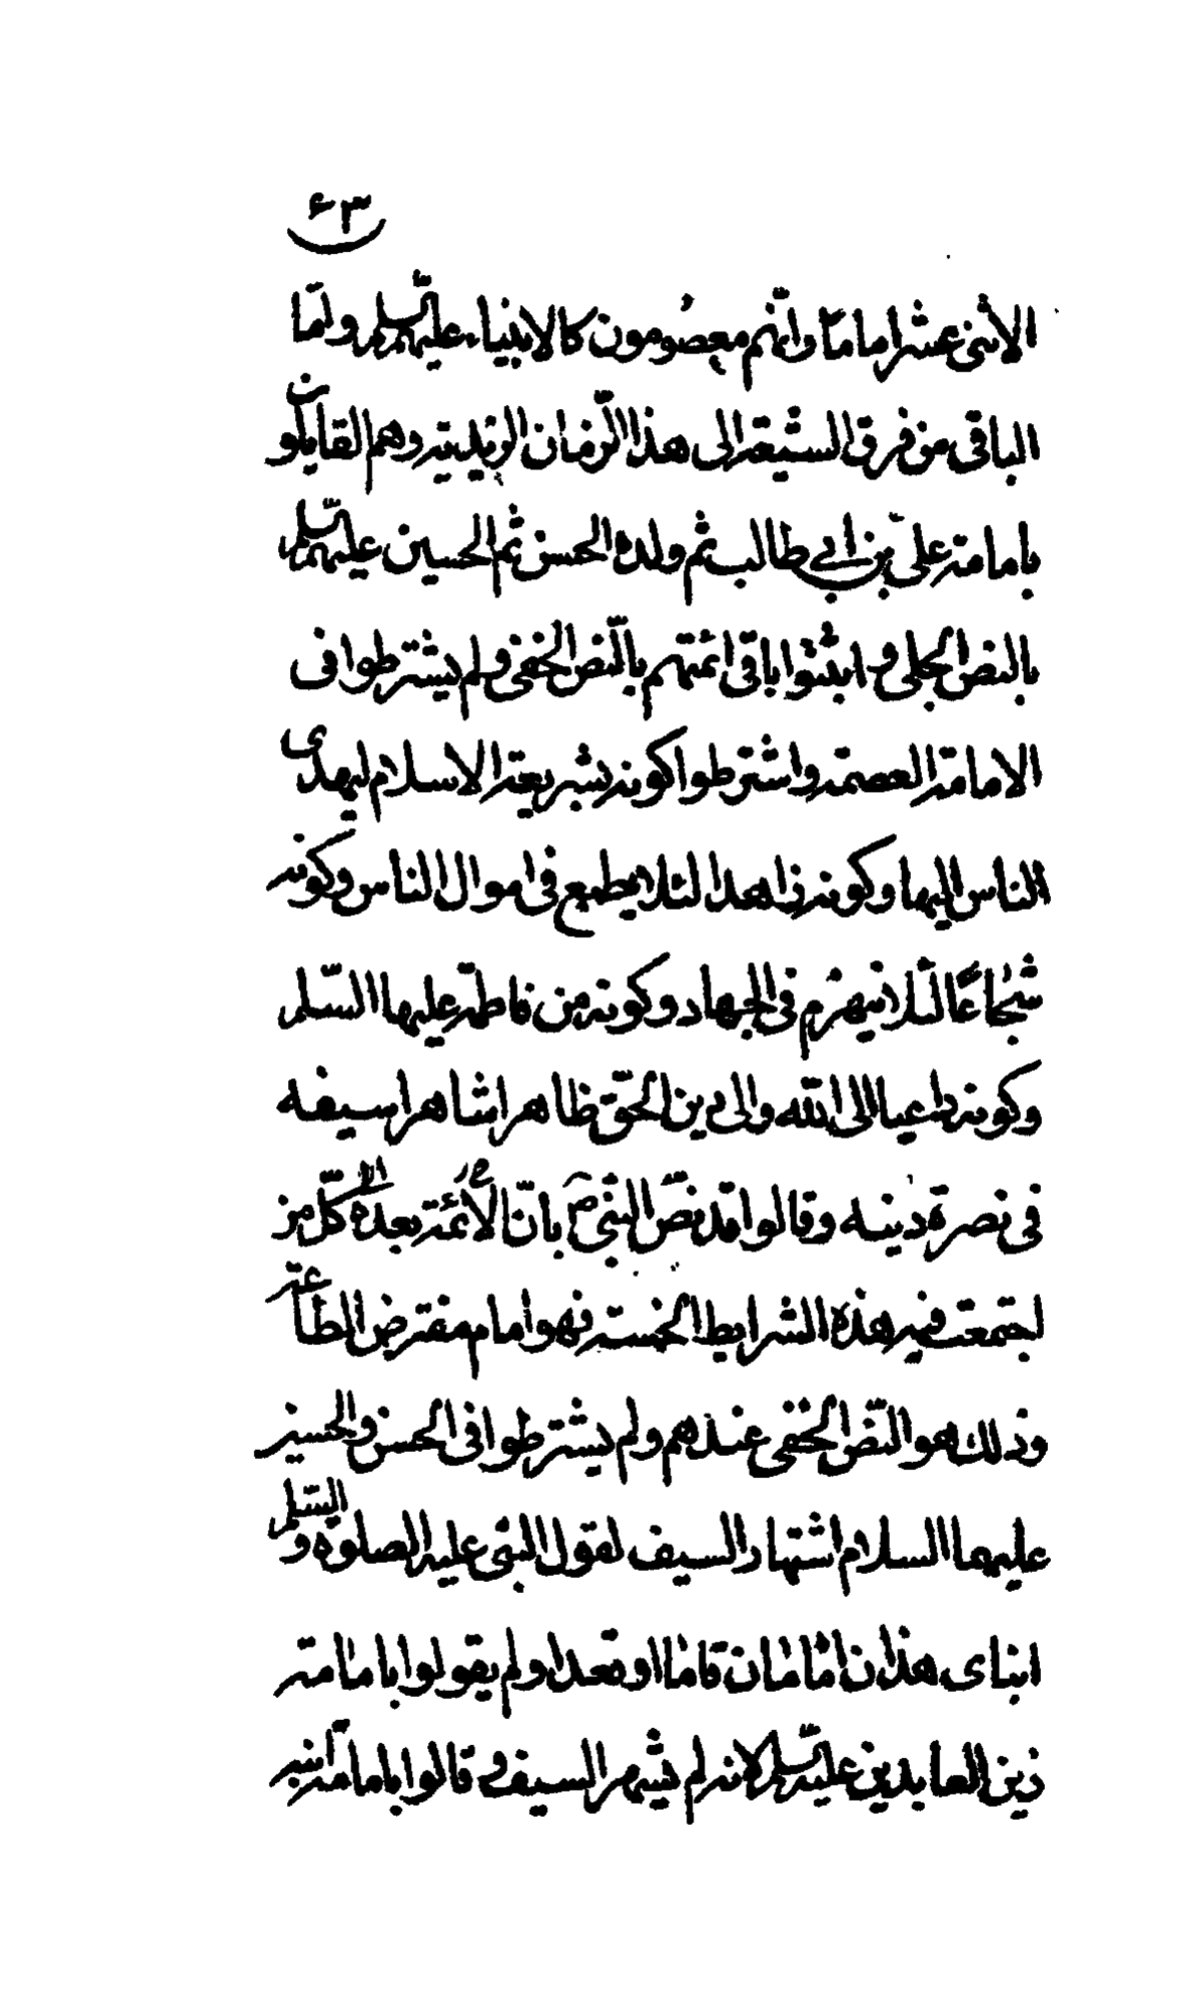 ٤٣
الأثنى عشر اماما وانّهم معصُومون كالانبياء عليهم السّلم ولمّا
الباقى من فرق الشيعة الى هذا الزّمان الزيدية وهم القايلون
بامامة علىّ بن ابي طالب ثم ولده الحسن ثم الحسين عليهم السّلم
بالنص الجلى و اثبتوا باقى ائمتهم بالنّص الخفى ولم يشترطوا فى
الامامة العصمة واشترطوا كونه بشريعة الاسلام ليهدى
الناس اليها وكونه زاهدا لئلا يطمع فى اموال الناس وكونه
شجاعًا لئلا ينهزم فى الجهاد وكونه من فاطمة عليها السّلم
وكونه داعيا الى الله والى دين الحقّ ظاهرا شاهرا سيفه
فى نصرة دينه وقالوا قد نصّ النّبى ص بانّ الأئمة بعده كلّ من
اجتمعت فيه هذه الشرايط الخمسة فهو امام مفترض الطاعة
وذلك هو النّص الخفى عندهم ولم يشترطوا فى الحسن والحسين
عليهما السلام اشتهار السيف لقول النبى عليه الصلوة والسّلم
ابناى هذان امامان قاما او قعدا ولم يقولوا بامامة
زين العابدين عليه السّلم لانه لم يشهر السيف وقالوا بامامة ابنه